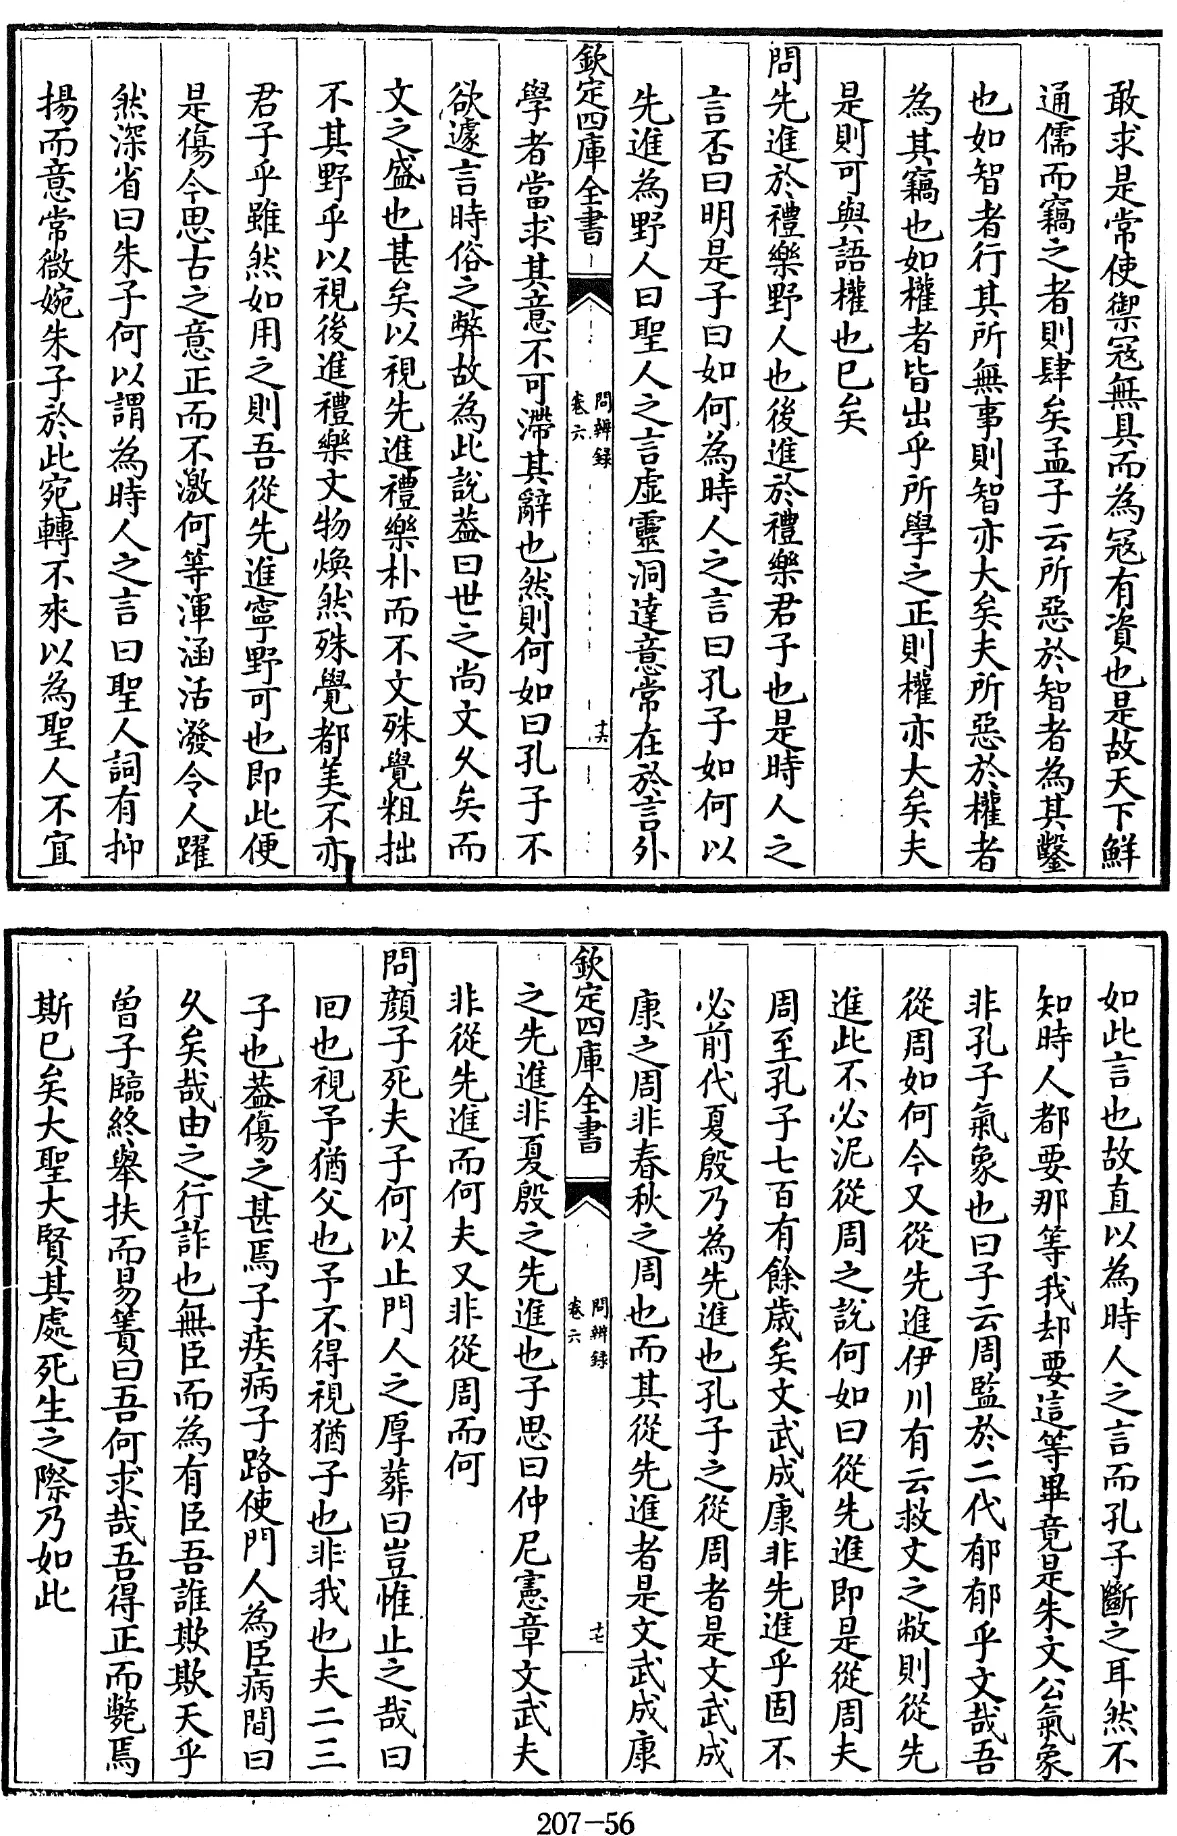 敢求是常使禦寇無具而為寇有資也是故天下鮮
通儒而竊之者則肆矣孟子云所惡於智者為其鑿
也如智者行其所無事則智亦大矣夫所惡於權者
為其竊也如權者皆出乎所學之正則權亦大矣夫
是則可與語權也已矣
問先進於禮樂野人也後進於禮樂君子也是時人之
言否曰明是子曰如何為時人之言曰孔子如何以
先進為野人曰聖人之言虛靈洞達意常在於言外
欽定四庫全書
問辨錄
卷六
十六
學者當求其意不可滯其辭也然則何如曰孔子不
欲遽言時俗之弊故為此說葢曰世之尚文久矣而
文之盛也甚矣以視先進禮樂朴而不文殊覺粗拙
不其野乎以視後進禮樂文物煥然殊覺都美不亦
君子乎雖然如用之則吾從先進寧野可也即此便
是傷今思古之意正而不激何等渾涵活潑令人躍
然深省曰朱子何以謂為時人之言曰聖人詞有抑
揚而意常微婉朱子於此宛轉不來以為聖人不宜
如此言也故直以為時人之言而孔子斷之耳然不
知時人都要那等我却要這等畢竟是朱文公氣象
非孔子氣象也曰子云周監於二代郁郁乎文哉吾
從周如何今又從先進伊川有云救文之敝則從先
進此不必泥從周之說何如曰從先進即是從周夫
周至孔子七百有餘歲矣文武成康非先進乎固不
必前代夏殷乃為先進也孔子之從周者是文武成
康之周非春秋之周也而其從先進者是文武成康
欽定四庫全書
問辨錄
卷六
十七
之先進非夏殷之先進也子思曰仲尼憲章文武夫
非從先進而何夫又非從周而何
問顏子死夫子何以止門人之厚葬曰豈惟止之哉曰
回也視予猶父也予不得視猶子也非我也夫二三
子也葢傷之甚焉子疾病子路使門人為臣病間曰
久矣哉由之行詐也無臣而為有臣吾誰欺欺天乎
曾子臨終舉扶而易簀曰吾何求哉吾得正而斃焉
斯已矣大聖大賢其處死生之際乃如此
207-56